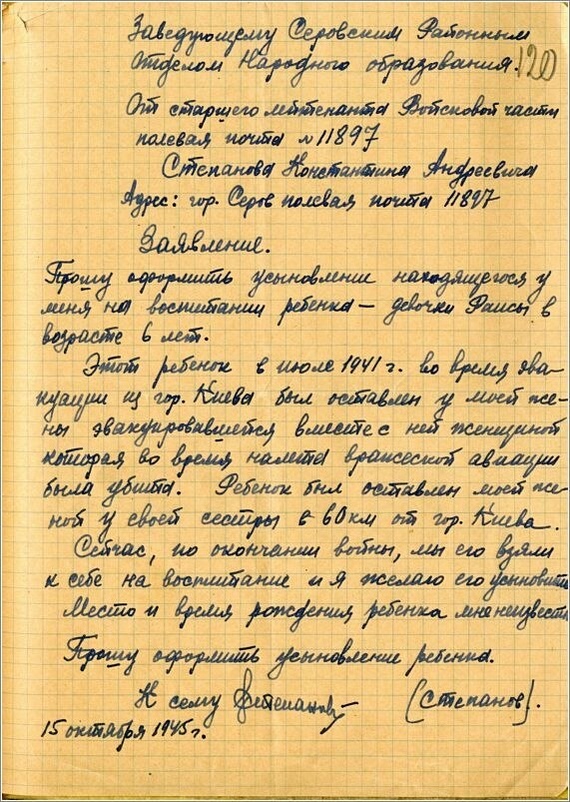 Заведующему Серовским Районным
Отделом Народного образования.
120
От старшего лейтенанта Войсковой части
полевая почта № 11897
Степанова Константина Андреевича
Адрес: гор. Серов полевая почта 11897
Заявление.
Прошу оформить усыновление находящегося у
меня на воспитании ребенка — девочки Раисы в
возрасте 6 лет.
Этот ребенок в июле 1941 г. во время эва-
куации из гор. Киева был оставлен у моей же-
ны эвакуировавшейся вместе с ней женщиной
которая во время налета вражеской авиации
была убита. Ребенок был оставлен моей же-
ной у своей сестры в 60 км от гор. Киева.
Сейчас, по окончании войны, мы его взяли
к себе на воспитание и я желаю его усыновить
Место и время рождения ребенка мне неизвестн
Прошу оформить усыновление ребенка.
К сему Степанов (Степанов).
15 октября 1945 г.